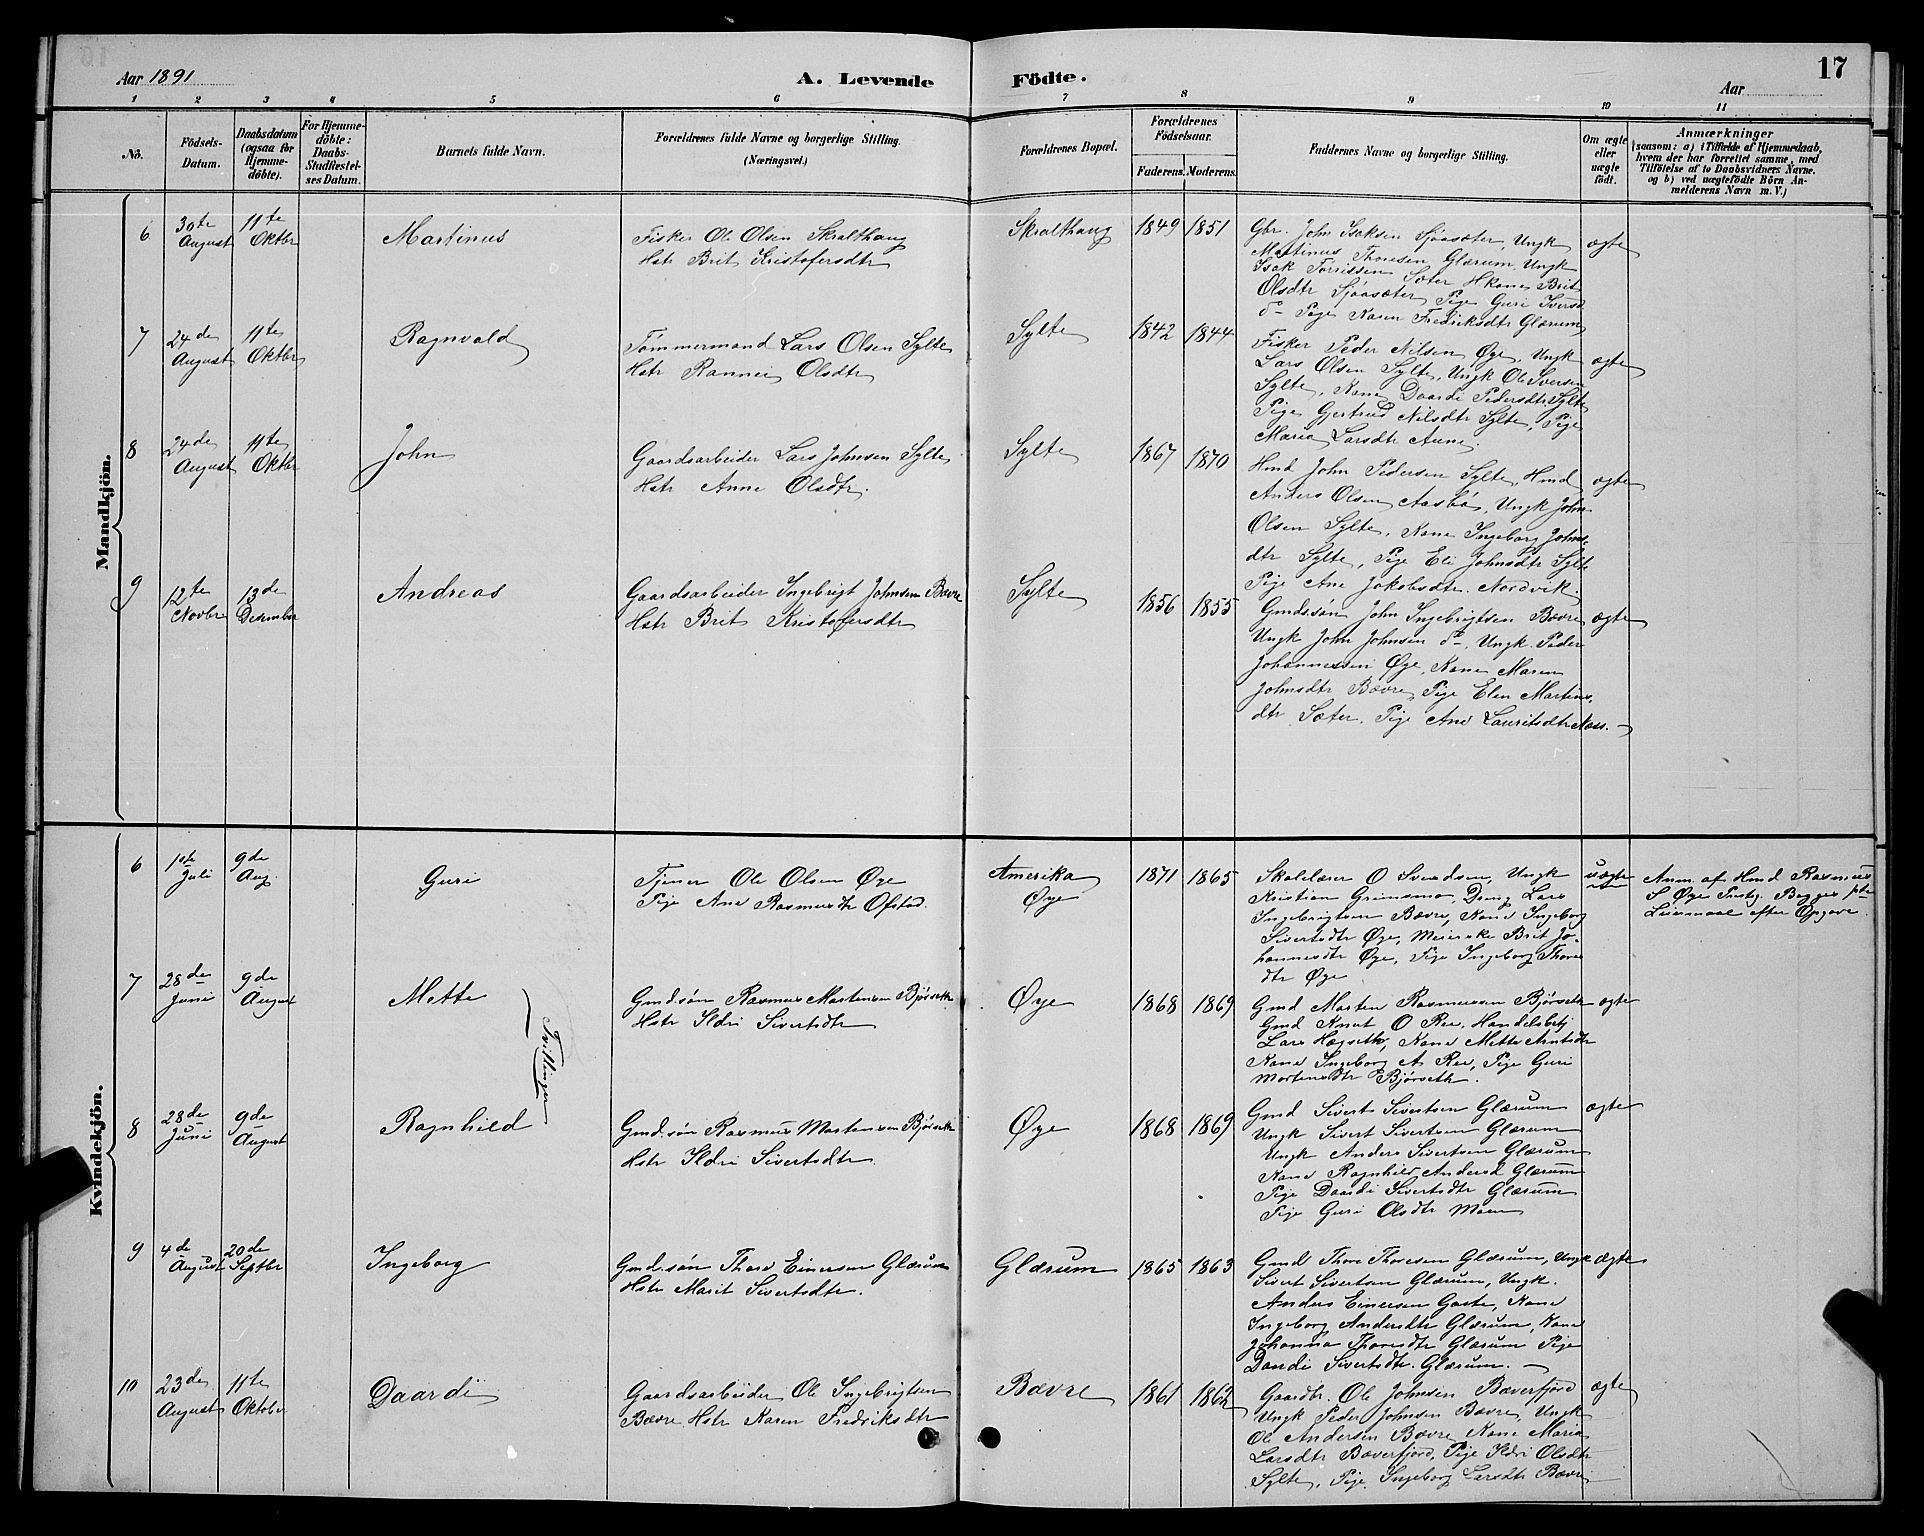 Aar 1891
A. Levende
Födte.
Aar
17
1 2 3 4 5 6 7 8 9 10 11
No.
Födsels-Datum.
Daabsdatum (ogsaa for Hjemme-döbte).
For Hjemme-döbte: Daabs-Stadfæstel-ses Datum.
Barnets fulde Navn.
Forældrenes fulde Navne og borgerlige Stilling. (Næringsvei.)
Forældrenes Bopæl.
Forældrenes Födselsaar.
Faderens. Moderens.
Faddernes Navne og borgerlige Stilling.
Om ægte eller uægte födt.
Anmærkninger
(saasom: a) i Tilfælde af Hjemmedaab,
hvem der har forrettet samme, med
Tilföielse af to Daabsvidners Navne.
og b) ved uægtefödte Börn An-
melderens Navn m. V.)
Mandkjön.
6
30te August
11te Oktbr
Martinus
Fisker Ole Olsen Skralthaug
Hstr Brit Kristofersdtr
Skralthaug
1849 1851
Gbr. John Isaksen Sjøasæter, Ungk
Martinus Thoresen Glærum, Ungk
Isak Torrissen Sæter Hkone Brit
Olsdtr Sjøasæter, Pige Guri Iversd
do Pige Karen Fredriksdtr Glærum
ægte
7
24de August
11te Oktbr
Ragnvald
Tømmermand Lars Olsen Sylte
Hstr Rannei Olsdtr
Sylte
1842 1844
Fisker Peder Nilsen Øye, Ungk
Lars Olsen Sylte, Ungk Ole Iversen
Sylte, Kone Daardi Pedersdtr Sylte
Pige Gjertrud Nilsdtr Sylte, Pige
Maria Larsdtr Aune.
ægte
8
24de August
11te Oktbr
John
Gaardsarbeider Lars Johnsen Sylte
Hstr Anne Olsdtr.
Sylte
1867 1870
Hmd John Pedersen Sylte, Hmd
Anders Olsen Aasbø, Ungk John
Olsen Sylte, Kone Ingeborg Johns-
dtr Sylte, Pige Eli Johnsdtr Sylte
Pige Ane Jakobsdtr. Nordvik.
ægte
9
12te Novbr
13de Desember
Andreas
Gaardsarbeider Ingebrigt Johnsen Bævre
Hstr Brit Kristofersdtr
Sylte
1856 1855
Gmds.søn John Ingebrigtsen Bævre
Ungk John Johnsen do, Ungk. Peder
Johannessen Øye, Kone Maren
Johnsdtr Bævre, Pige Elen Martins-
dtr Sæter, Pige Ane Lauritsdtr Næss.
ægte
Kvindekjön.
6
1ste Juli
9de Aug.
Guri
Tjener Ole Olsen Øye
Pige Ane Rasmusdtr Ofstad.
Amerika
Øye
1871 1865
Skolelærer O Svendsen, Ungk
Kristian Grimsmo, Dreng Lars
Ingebrigtsen Bævre, Kone Ingeborg
Sivertsdtr Øye, Meierske Brit Jo-
hannesdtr Øye, Pige Ingeborg Thores
dtr Øye
uægte
Anm. af Hmd Rasmus
S Øye
Leiermaal efter Opgave.
7
28de Juni
9de August
Mette
Tvillinger
Gmd.søn Rasmus Mortensen Bjørseth
Hstr Ildri Sivertsdtr
Øye
1868 1869
Gmd Morten Rasmussen Bjørseth
Gmd Knut O Ree, Handelsbetj
Lars Hagseth, Kone Mette Arntsdtr
Kone Ingeborg A Ree, Pige Guri
Mortensdtr Bjørseth.
ægte
8
28de Juni
9de August
Ragnhild
Gmd.søn Rasmus Mortensen Bjørseth
Hstr Ildri Sivertsdtr.
Øye
1868 1869
Gmd Sivert Sivertsen Glærum
Ungk Sivert Sivertsen Glærum
Ungk Anders Sivertsen Glærum
Kone Ragnhild Andersd Glærum
Pige Daardi Sivertsdtr Glærum
Pige Guri Olsdtr Moen
ægte
9
4de August
20de Septbr
Ingeborg
Gmd.søn Thore Einersen Glærum
Hstr Marit Sivertsdtr.
Glærum
1865 1863
Gmd Thore Thoresen Glærum, Ungk
Sivert Sivertsen Glærum, Ungk.
Anders Einersen Gaste, Kone
Ingeborg Andersdtr Glærum, Kone
Johanna Thoresdtr Glærum Pige
Daardi Sivertsdtr. Glærum.
ægte
10
23de August
11te Oktober
Daardi
Gaardsarbeider Ole Ingebrigtsen
Bævre Hstr Karen Fredriksdtr
Bævre
1861 1862
Gaardbr. Ole Johnsen Bæverfjord
Ungk Peder Johnsen Bævre, Ungk
Ole Andersen Bævre, Kone Maria
Larsdtr Bæverfjord, Pige Ildri Olsdtr
Sylte, Pige, Ingeborg Larsdtr Bævre
ægte